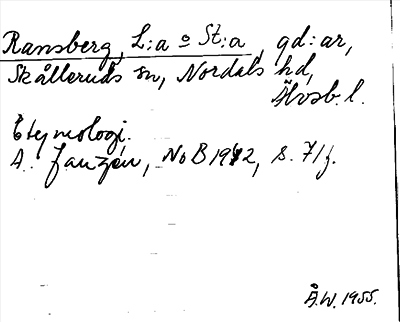 Ransberg, L:a o St:a, gd:ar,
Skålleruds sn, Nordals hd,
Älvsb. l.
Etymologi.
A. Janzén, NoB 1942, s. 71f.
Å.W. 1955.